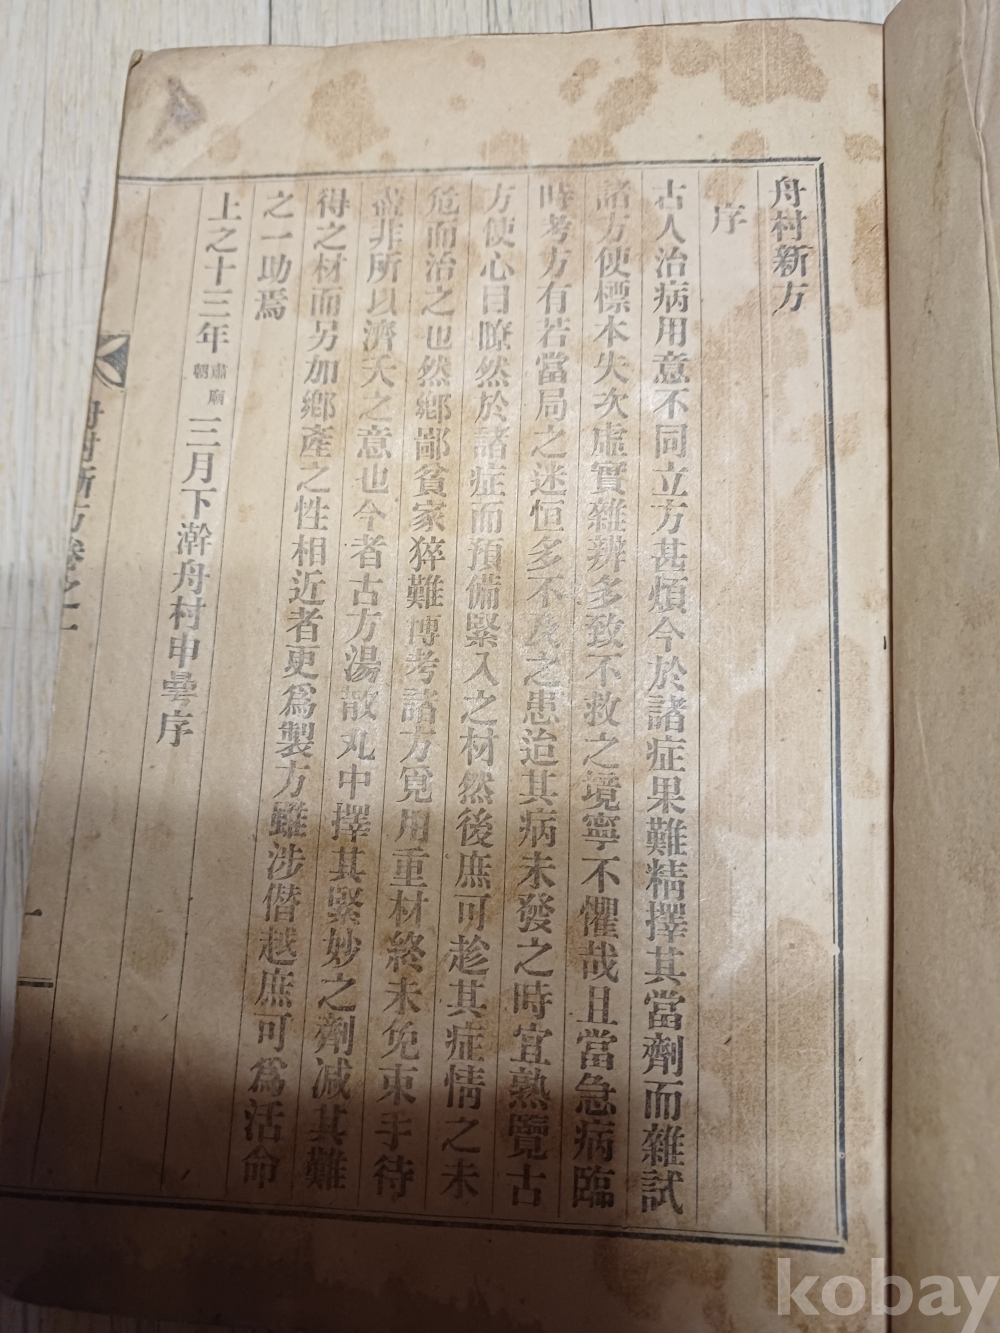 舟村新方
序
古人治病用意不同立方甚煩今於諸症果難精擇其當劑而雜試
諸方使標本失次虛實雜辨多致不救之境寧不懼哉且當急病臨
時考方有若當局之迷恒多不及之患迨其病未發之時宜熟覽古
方使心目瞭然於諸症而預備緊入之材然後庶可趁其症情之未
危而治之也然鄕鄙貧家猝難博考諸方覓用重材終未免束手待
盡非所以濟夭之意也今者古方湯散丸中擇其緊妙之劑减其難
得之材而另加鄕產之性相近者更爲製方雖涉僭越庶可爲活命
之一助焉
上之十三年肅廟朝三月下澣舟村申曼序
舟村新方卷之一
一
kobay